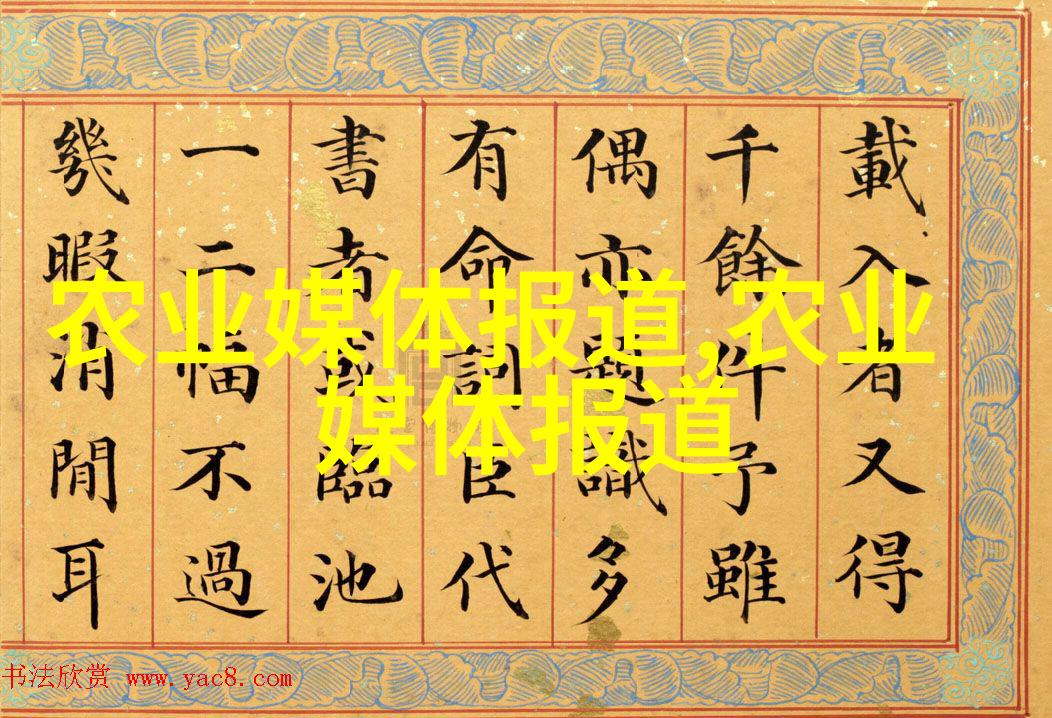 載入者又得
千餘件予雖
偶亦題識多
有命詞臣代
書者或臨池
一二幅不過
幾暇消閒耳
农业媒体报道,农业
媒体报道
书法欣赏 www.yac8.com